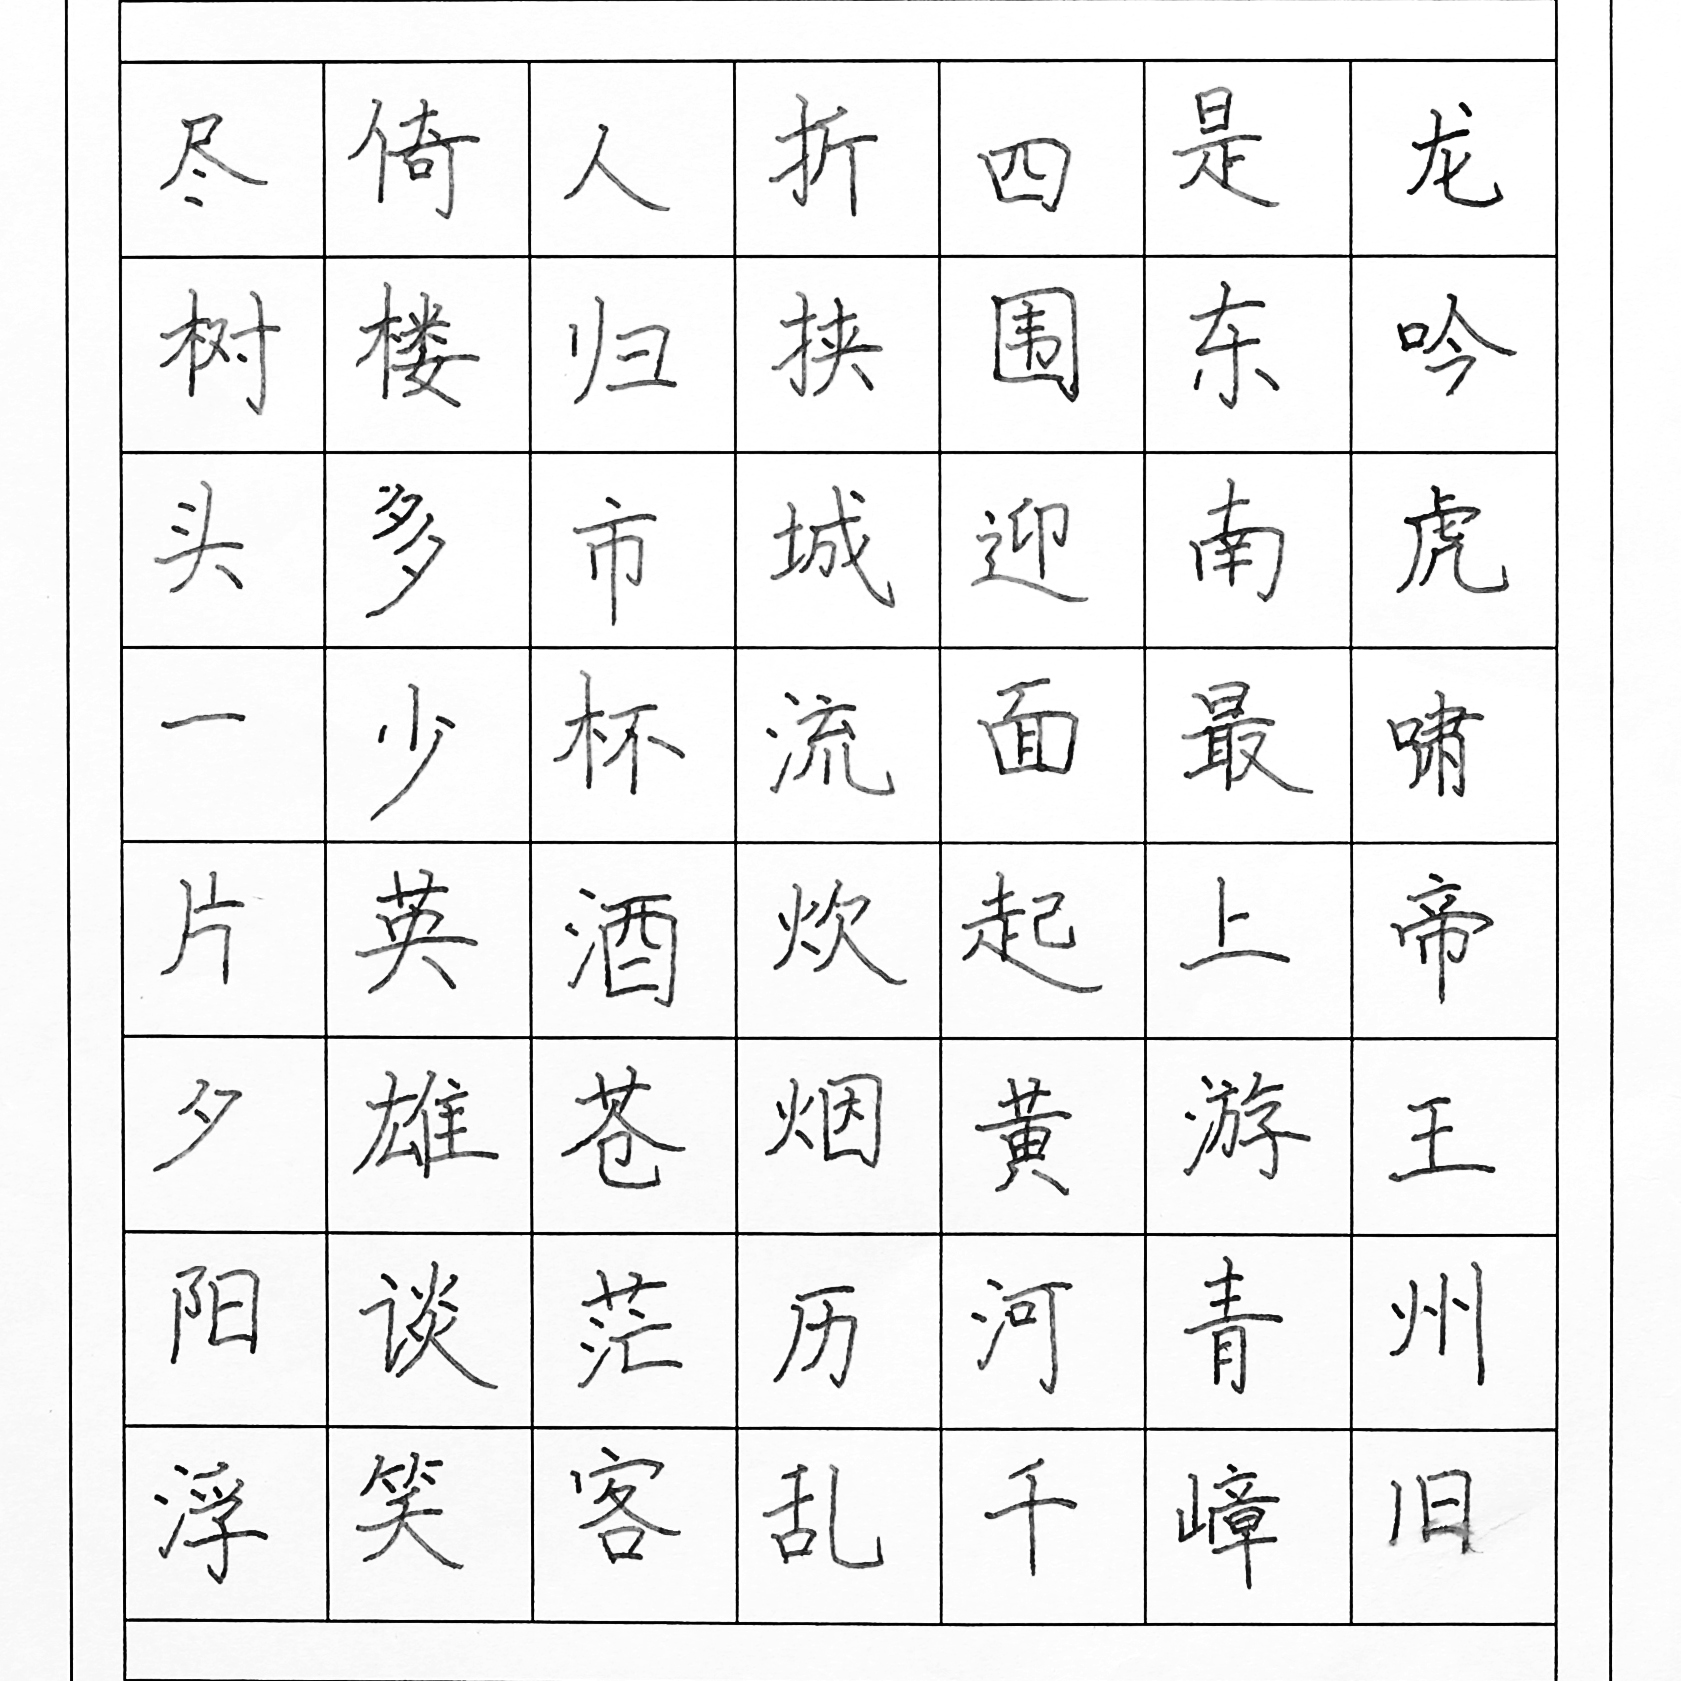 龙吟虎啸帝王州旧
是东南最上游青嶂
四围迎面起黄河千
折挟城流炊烟历乱
人归市杯酒苍茫客
倚楼多少英雄谈笑
尽树头一片夕阳浮